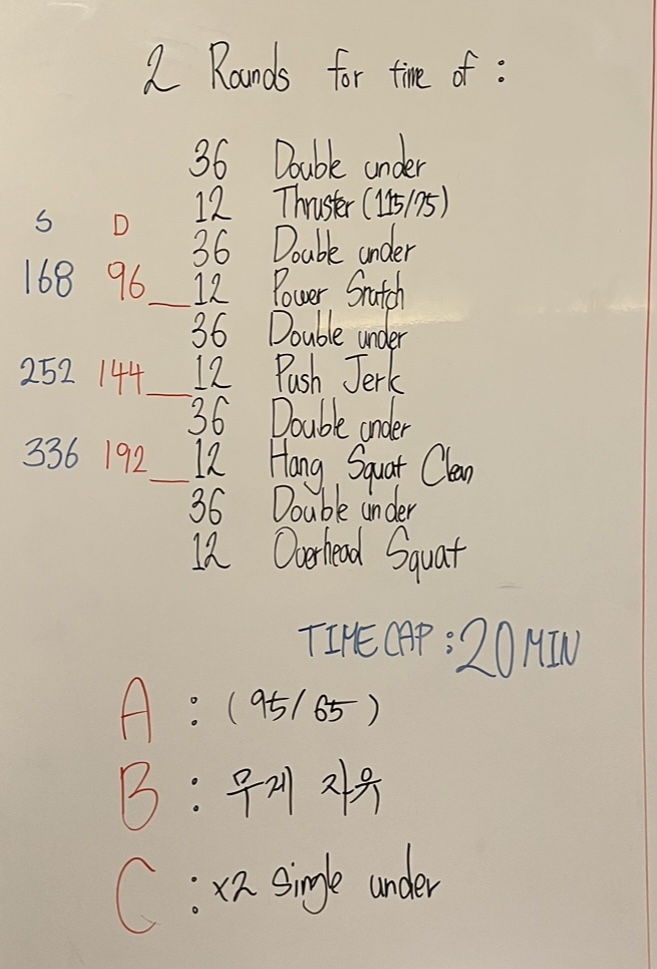 2 Rounds for time of :
36 Double under
12 Thruster (115/75)
S D
36 Double under
168 96 12 Power Snatch
36 Double under
252 144 12 Push Jerk
36 Double under
336 192 12 Hang Squat Clean
36 Double under
12 Overhead Squat
TIME CAP : 20 MIN
A : (95/65)
B : 무게 자유
C : x2 Single under